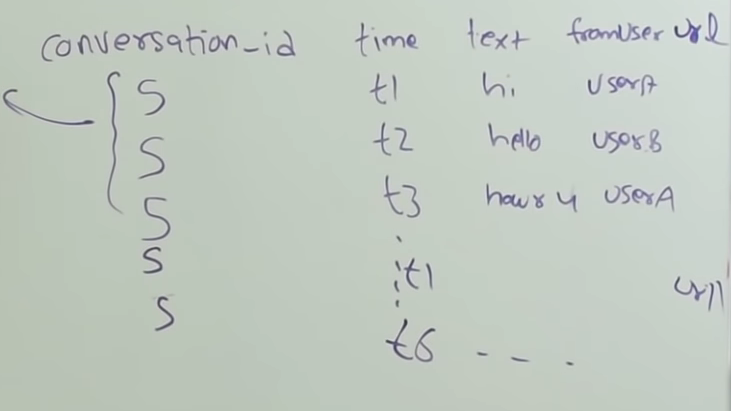 conversation_id time text fromUser url
5 t1 hi userA
5 t2 hello userB
5 t3 how r u userA
5 t1 url1
5
t6 - - .